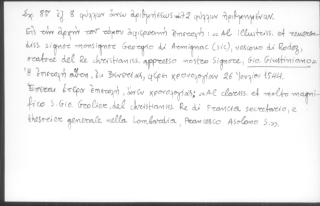 Σχ. 8ον ἐξ 8 φύλλων ἄνευ ἀριθμήσεως + 72 φύλλων ἠριθμημένων.
Εἰς τὴν ἀρχὴν τοῦ τόμου ἀφιερωτικὴ ἐπιστολή: «Al Illustriss. et reveren-
diss signor monsignor Georgio di Armignac (sic), vescovo di Rodez,
oratore del Re christianiss. appresso nostro signore, Gio. Giustiniano»
Ἡ ἐπιστολὴ αὕτη, ἐκ Βενετίας, φέρει χρονολογίαν 26 Ἰουνίου 1544.
Ἕπεται ἑτέρα ἐπιστολή, ἄνευ χρονολογίας: «Al clariss. et molto magni-
fico S. Gio. Grolier, del christianiss. Re di Francia secretario, e
thesorier generale nella Lombardia, Francesco Asolano S.».